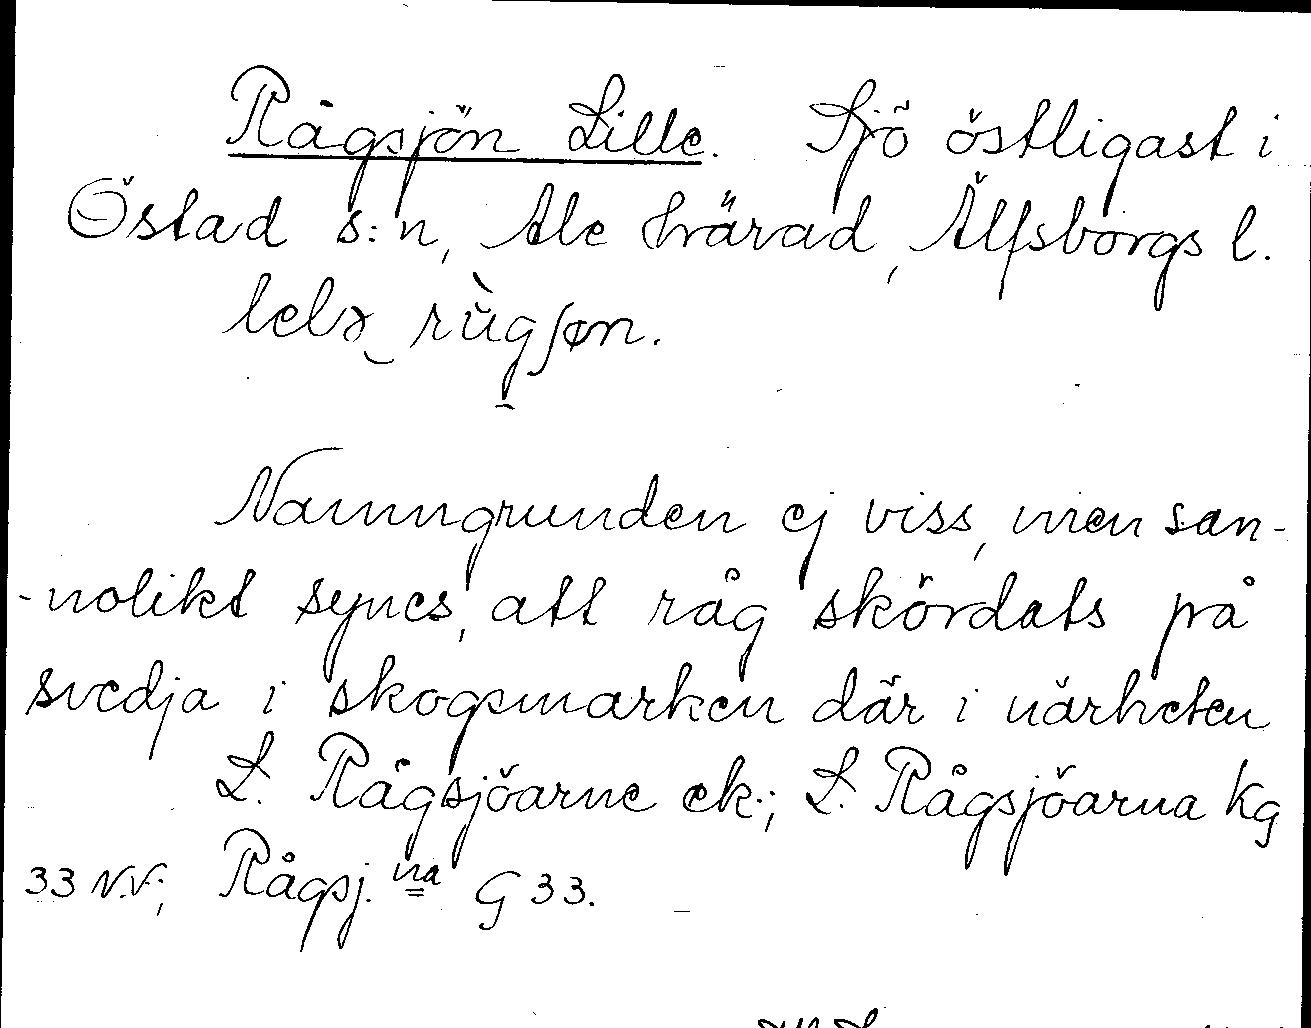 Rågsjön Lille. Sjö östligast i
Östad s:n, Ale härad, Älfsborgs l.
rùgʃøn.
Namngrunden ej viss, men san-
-nolikt synes, att råg skördats på
svedja i skogsmarken där i närheten
L. Rågsjöarne ek.; L. Rågsjöarna Kg
33 N.V.; Rågsj.na G 33.